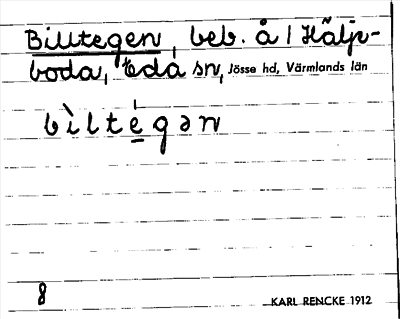 Billtegen, beb. å 1 Hälje-
boda, Eda sn, Jösse hd, Värmlands län
bìltégən
8
KARL RENCKE 1912